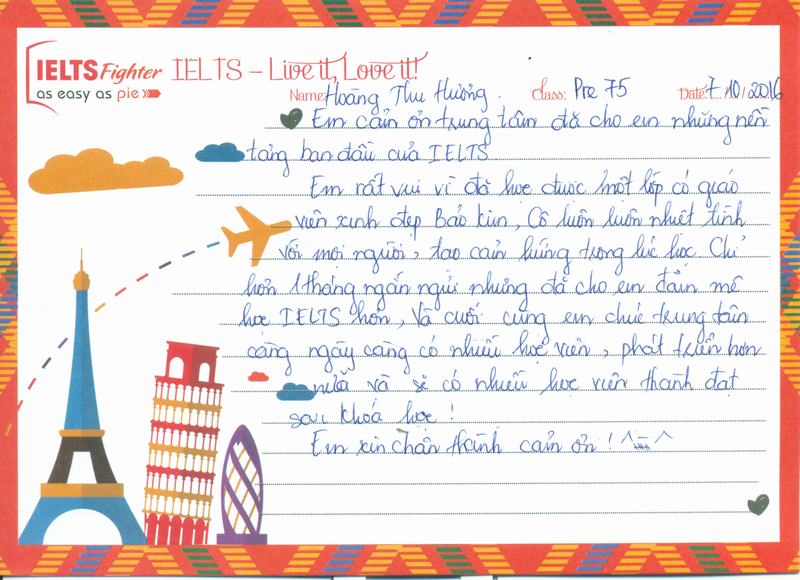 IELTS Fighter
as easy as pie
IELTS – Live it, Love it!
Name: Hoàng Thu Hương. Class: Pre 75 Date: 7/10/2016
Em cảm ơn trung tâm đã cho em những nền
tảng ban đầu của IELTS
Em rất vui vì đã học được một lớp có giáo
viên xinh đẹp Bảo Kim, Cô luôn luôn nhiệt tình
với mọi người, tạo cảm hứng trong lúc học. Chỉ
hơn 1 tháng ngắn ngủi nhưng đã cho em đam mê
học IELTS hơn, Và cuối cùng em chúc trung tâm
càng ngày càng có nhiều học viên, phát triển hơn
nữa và sẽ có nhiều học viên thành đạt
sau khoá học!
Em xin chân thành cảm ơn! ^_^